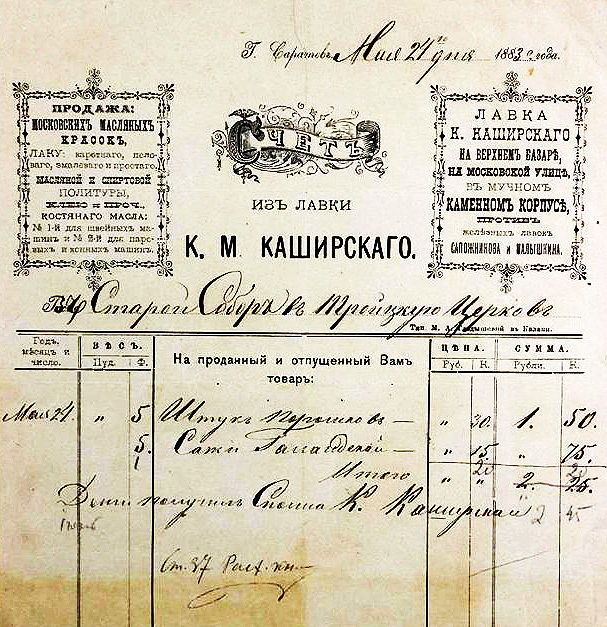 Г. Саратовъ, Мая 24 го дня 1883 го года.
ПРОДАЖА:
МОСКОВСКИХЪ МАСЛЯНЫХЪ
КРАСОКЪ,
ЛАКУ: каретнаго,
ваго, эмалеваго и простаго.
МАСЛЯНОЙ и СПИРТОВОЙ
ПОЛИТУРЫ,
КЛЕЮ и ПРОЧ.,
КОСТЯНАГО МАСЛА:
№ 1-й для швейныхъ ма-
шинъ и № 2-й для паро-
выхъ и конныхъ машинъ.
СЧЕТЪ
ИЗЪ ЛАВКИ
К. М. КАШИРСКАГО.
ЛАВКА
К. КАШИРСКАГО
НА ВЕРХНЕМЪ БАЗАРѢ,
НА МОСКОВСКОЙ УЛИЦѢ,
ВЪ МУЧНОМЪ
КАМЕННОМЪ КОРПУСѢ,
ПРОТИВЪ
желѣзныхъ лавокъ
САПОЖНИКОВА И МАЛЫШКИНА.
Въ Старой Соборъ въ Троицкую Церковь
Тип. М. А. въ Казани.
Годъ, мѣсяцъ и число.
ВѢСЪ.
Пуд. Ф.
На проданный и отпущенный Вамъ
товаръ:
ЦѢНА.
Руб. К.
СУММА.
Рубли. К.
Мая 24. " 5 Штукъ порошковъ — " 30. 1. 50.
5. Сажи Голандской — " 15. " 75.
1 20 20
Итого " " 2. 25.
Деньги получилъ Сполна К. Каширскай 2 45
Ст. 37 Расх. кн—